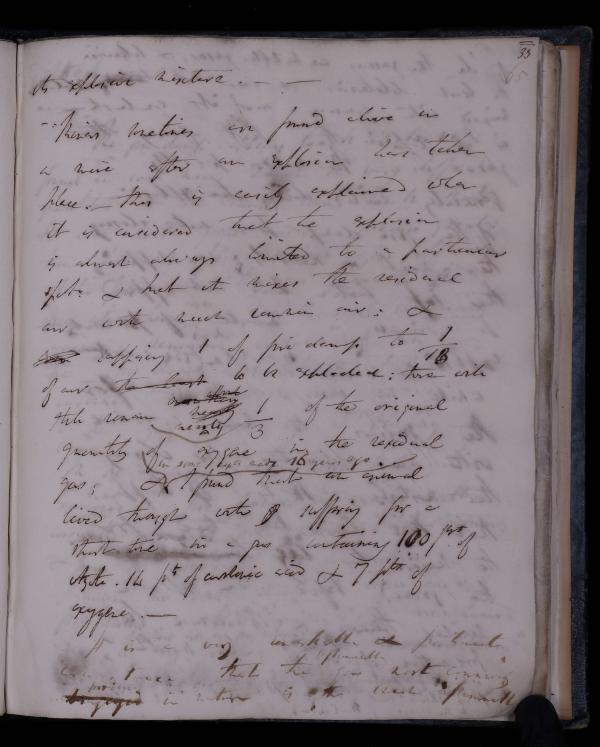 33
its explosive mixture. — —
Miners sometimes are found alive in
a mine after an explosion has taken
place. — This is easily explained when
it is considered that the explosion
is almost always limited to a particular
spot. & that it mixes the residual
air with much common air; &
supposing 1 of fire damp to 1/16
of air the least to be exploded; there will
still remain nearly 1/3 of the original
quantity of oxygene in the residual
in some experiments 16 years ago
gas; & I found that an animal
lived though with suffering for a
short time in a gas containing 100 pts of
Azote. 14 pts of carbonic acid & 7 pts of
oxygene. —
It is a very remarkable &
that the gas most common
in nature is the